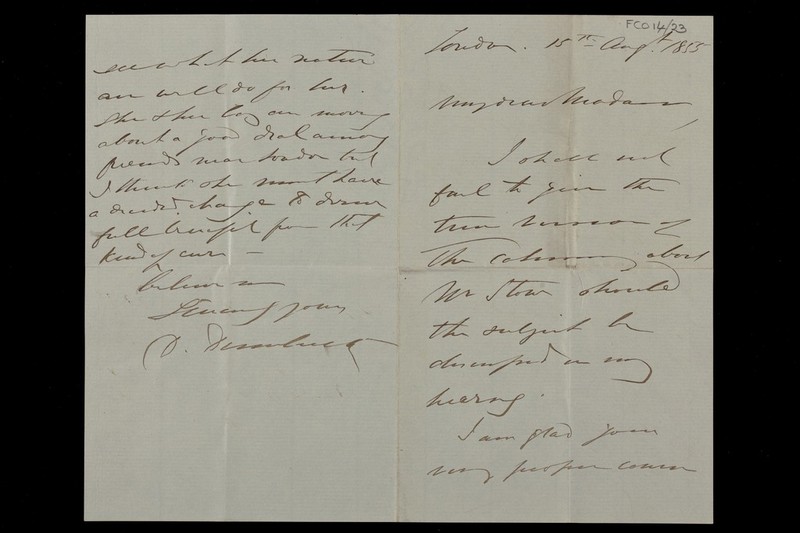 FCO 14/23
London. 15th Augt. 1855
My dear Madam
I shall not
fail to give the
true version of
The calumny about
Mr Stow should
the subject be
discussed in my
hearing.
I am glad your
very proper
see what her native
air will do for her.
She & her boy are moving
about a good deal among
friends near London but
I think she must have
a decided change to derive
full benefit from that
kind of cure —
believe me
yours
D.